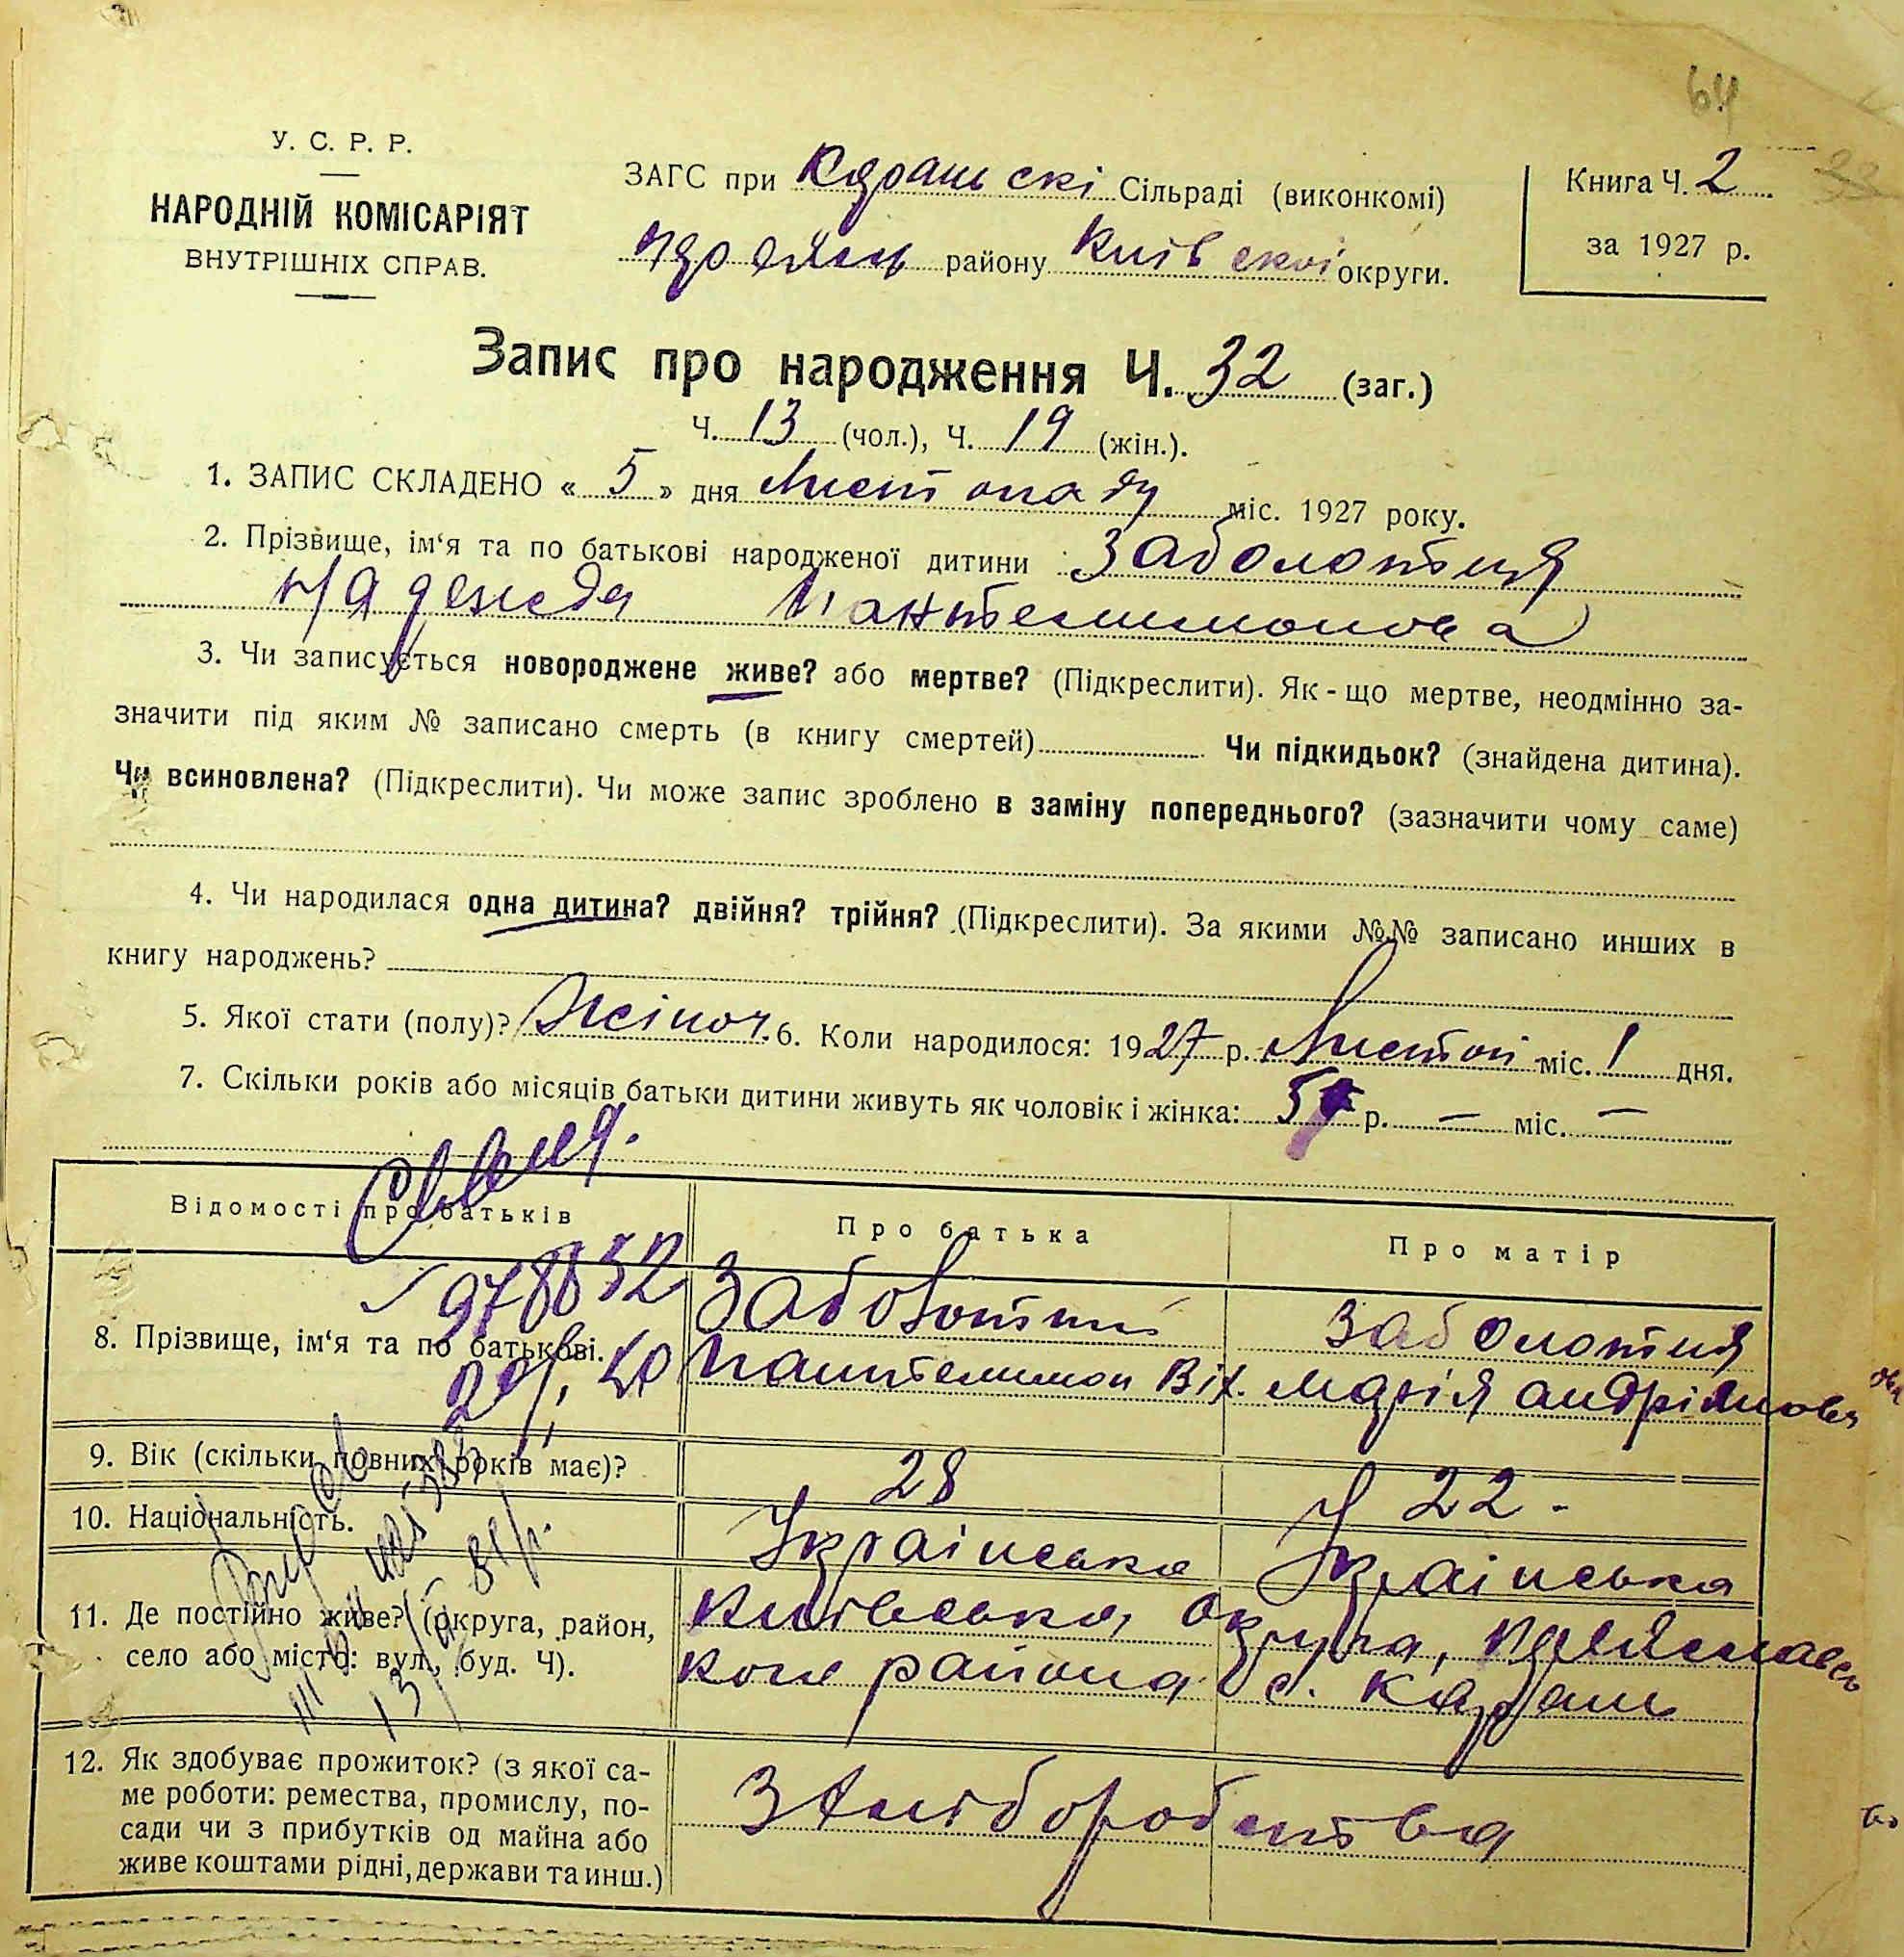 64
У. С. Р. Р.
НАРОДНІЙ КОМІСАРІЯТ
ВНУТРІШНІХ СПРАВ.
ЗАГС при Кдраньскі Сільраді (виконкомі)
району Київскої округи.
Книга Ч. 2
за 1927 р.
Запис про народження Ч. 32 (заг.)
Ч. 13 (чол.), Ч. 19 (жін.).
1. ЗАПИС СКЛАДЕНО « 5 » дня Листопаду міс. 1927 року.
2. Прізвище, ім‘я та по батькові народженої дитини Заболотня
Надежда Пантелимонова
3. Чи записується новороджене живе? або мертве? (Підкреслити). Як-що мертве, неодмінно за-
значити під яким № записано смерть (в книгу смертей) Чи підкидьок? (знайдена дитина).
Чи всиновлена? (Підкреслити). Чи може запис зроблено в заміну попереднього? (зазначити чому саме)
4. Чи народилася одна дитина? двійня? трійня? (Підкреслити). За якими №№ записано инших в
книгу народжень?
5. Якої стати (полу)? Жіноч. 6. Коли народилося: 1927 р. Листоп міс. 1 дня.
7. Скільки років або місяців батьки дитини живуть як чоловік і жінка: 5 р. — міс. —
Відомості про батьків
Про батька
Про матір
8. Прізвище, ім‘я та по батькові.
Заболотний
Пантелимон Віх.
Заболотня
Марія Андріянова
9. Вік (скільки повних років має)?
28
22 -
10. Національність.
Українська
Українська
11. Де постійно живе? (округа, район,
село або місто: вул., буд. Ч).
Київська округа,
кого района с. Кардань
12. Як здобуває прожиток? (з якої са-
ме роботи: ремества, промислу, по-
сади чи з прибутків од майна або
живе коштами рідні, держави та инш.)
З хліборобства